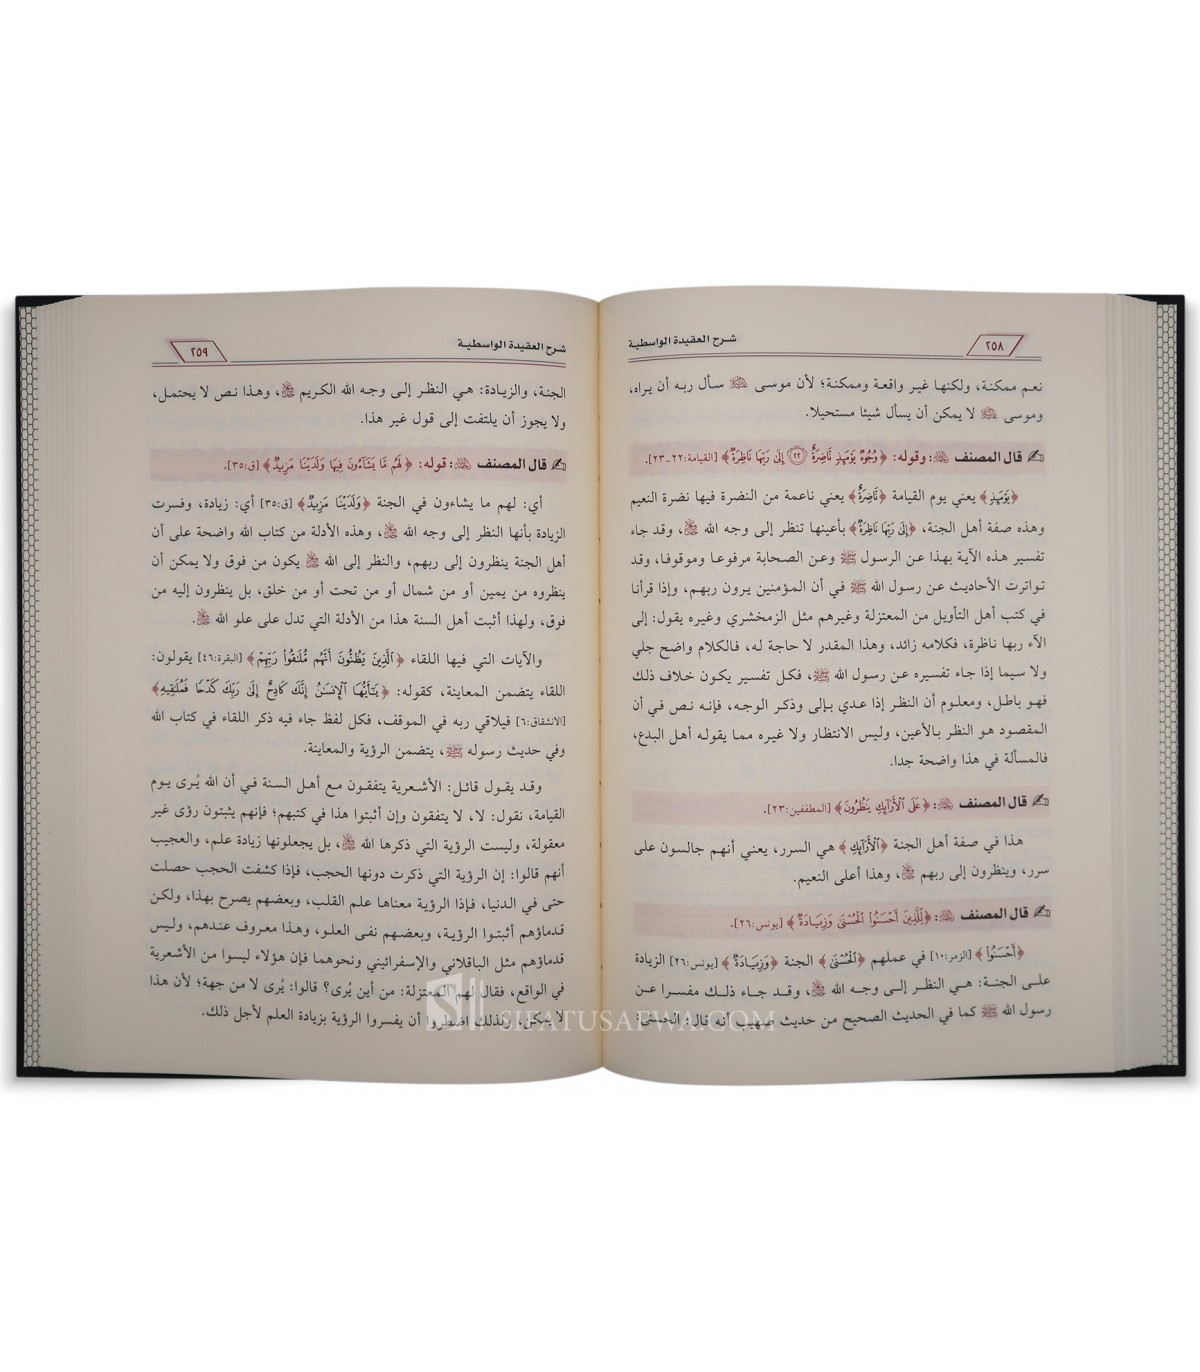 ٢٥٨
شرح العقيدة الواسطية
نعم ممكنة، ولكنها غير واقعة وممكنة؛ لأن موسى سأل ربه أن يراه،
وموسى لا يمكن أن يسأل شيئا مستحيلا.
قال المصنف : وقوله: ﴿وُجُوهٌ يَوْمَئِذٍ نَّاضِرَةٌ ٢٢ إِلَىٰ رَبِّهَا نَاظِرَةٌ﴾ [القيامة:٢٢-٢٣].
﴿يَوْمَئِذٍ﴾ يعني يوم القيامة ﴿نَّاضِرَةٌ﴾ يعني ناعمة من النضرة فيها نضرة النعيم
وهذه صفة أهل الجنة، ﴿إِلَىٰ رَبِّهَا نَاظِرَةٌ﴾ بأعينها تنظر إلى وجه الله ، وقد جاء
تفسير هذه الآية بهذا عن الرسول ﷺ وعن الصحابة مرفوعا وموقوفا، وقد
تواترت الأحاديث عن رسول الله ﷺ في أن المؤمنين يرون ربهم، وإذا قرأنا
في كتب أهل التأويل من المعتزلة وغيرهم مثل الزمخشري وغيره يقول: إلى
الآء ربها ناظرة، فكلامه زائد، وهذا المقدر لا حاجة له، فالكلام واضح جلي
ولا سيما إذا جاء تفسيره عن رسول الله ﷺ، فكل تفسير يكون خلاف ذلك
فهو باطل، ومعلوم أن النظر إذا عدي بإلى وذكر الوجه، فإنه نص في أن
المقصود هو النظر بالأعين، وليس الانتظار ولا غيره مما يقوله أهل البدع،
فالمسألة في هذا واضحة جدا.
قال المصنف : ﴿عَلَى ٱلْأَرَآئِكِ يَنظُرُونَ﴾ [المطففين:٢٣].
هذا في صفة أهل الجنة ﴿ٱلْأَرَآئِكِ﴾ هي السرر، يعني أنهم جالسون على
سرر، وينظرون إلى ربهم ، وهذا أعلى النعيم.
قال المصنف : ﴿لِّلَّذِينَ أَحْسَنُوا۟ ٱلْحُسْنَىٰ وَزِيَادَةٌ﴾ [يونس:٢٦].
﴿أَحْسَنُوا۟﴾ [الزمر:١٠] في عملهم ﴿ٱلْحُسْنَىٰ﴾ الجنة ﴿وَزِيَادَةٌ﴾ [يونس:٢٦] الزيادة
على الجنة: هي النظر إلى وجه الله ، وقد جاء ذلك مفسرا عن
رسول الله ﷺ كما في الحديث الصحيح من حديث صهيب أنه قال: الحسنى:
شرح العقيدة الواسطية
٢٥٩
الجنة، والزيادة: هي النظر إلى وجه الله الكريم ، وهذا نص لا يحتمل،
ولا يجوز أن يلتفت إلى قول غير هذا.
قال المصنف : قوله: ﴿لَهُم مَّا يَشَآءُونَ فِيهَا وَلَدَيْنَا مَزِيدٌ﴾ [ق:٣٥].
أي: لهم ما يشاءون في الجنة ﴿وَلَدَيْنَا مَزِيدٌ﴾ [ق:٣٥] أي: زيادة، وفسرت
الزيادة بأنها النظر إلى وجه الله ، وهذه الأدلة من كتاب الله واضحة على أن
أهل الجنة ينظرون إلى ربهم، والنظر إلى الله يكون من فوق ولا يمكن أن
ينظروه من يمين أو من شمال أو من تحت أو من خلق، بل ينظرون إليه من
فوق، ولهذا أثبت أهل السنة هذا من الأدلة التي تدل على علو الله .
والآيات التي فيها اللقاء ﴿ٱلَّذِينَ يَظُنُّونَ أَنَّهُم مُّلَـٰقُوا۟ رَبِّهِمْ﴾ [البقرة:٤٦] يقولون:
اللقاء يتضمن المعاينة، كقوله: ﴿يَـٰٓأَيُّهَا ٱلْإِنسَـٰنُ إِنَّكَ كَادِحٌ إِلَىٰ رَبِّكَ كَدْحًا فَمُلَـٰقِيهِ﴾
[الانشقاق:٦] فيلاقي ربه في الموقف، فكل لفظ جاء فيه ذكر اللقاء في كتاب الله
وفي حديث رسوله ﷺ، يتضمن الرؤية والمعاينة.
وقد يقول قائل: الأشعرية يتفقون مع أهل السنة في أن الله يُرى يوم
القيامة، نقول: لا، لا يتفقون وإن أثبتوا هذا في كتبهم؛ فإنهم يثبتون رؤى غير
معقولة، وليست الرؤية التي ذكرها الله ، بل يجعلونها زيادة علم، والعجيب
أنهم قالوا: إن الرؤية التي ذكرت دونها الحجب، فإذا كشفت الحجب حصلت
حتى في الدنيا، فإذا الرؤية معناها علم القلب، وبعضهم يصرح بهذا، ولكن
قدماؤهم أثبتوا الرؤية، وبعضهم نفى العلو، وهذا معروف عندهم، وليس
قدماؤهم مثل الباقلاني والإسفرائيني ونحوهما فإن هؤلاء ليسوا من الأشعرية
في الواقع، فقال لهم المعتزلة: من أين يُرى؟ قالوا: يُرى لا من جهة؛ لأن هذا
لا يمكن، ولذلك اضطروا أن يفسروا الرؤية بزيادة العلم لأجل ذلك.
SIFATUSAFWA.COM